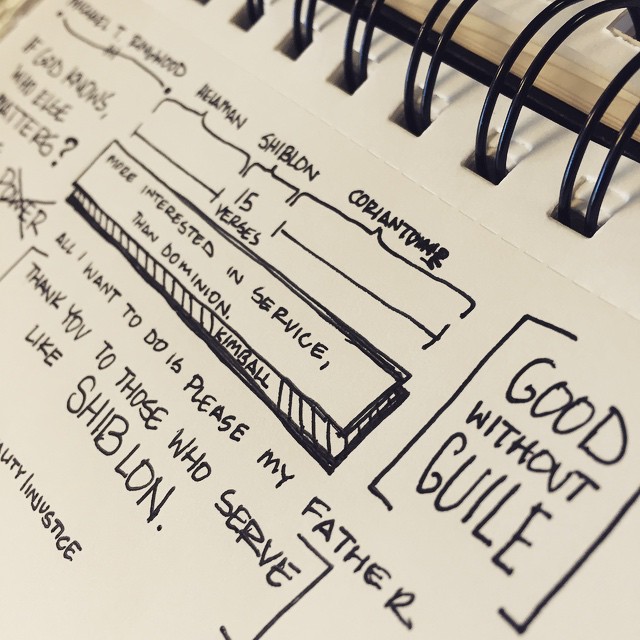 MICHAEL T. RINGWOOD
IF GOD KNOWS,
WHO ELSE
MATTERS?
HELAMAN SHIBLON CORIANTON
15
VERSES
MORE INTERESTED IN SERVICE,
THAN DOMINION.
KIMBALL
ALL I WANT TO DO IS PLEASE MY FATHER
THANK YOU TO THOSE WHO SERVE
LIKE
SHIBLON.
GOOD
WITHOUT
GUILE
/INJUSTICE